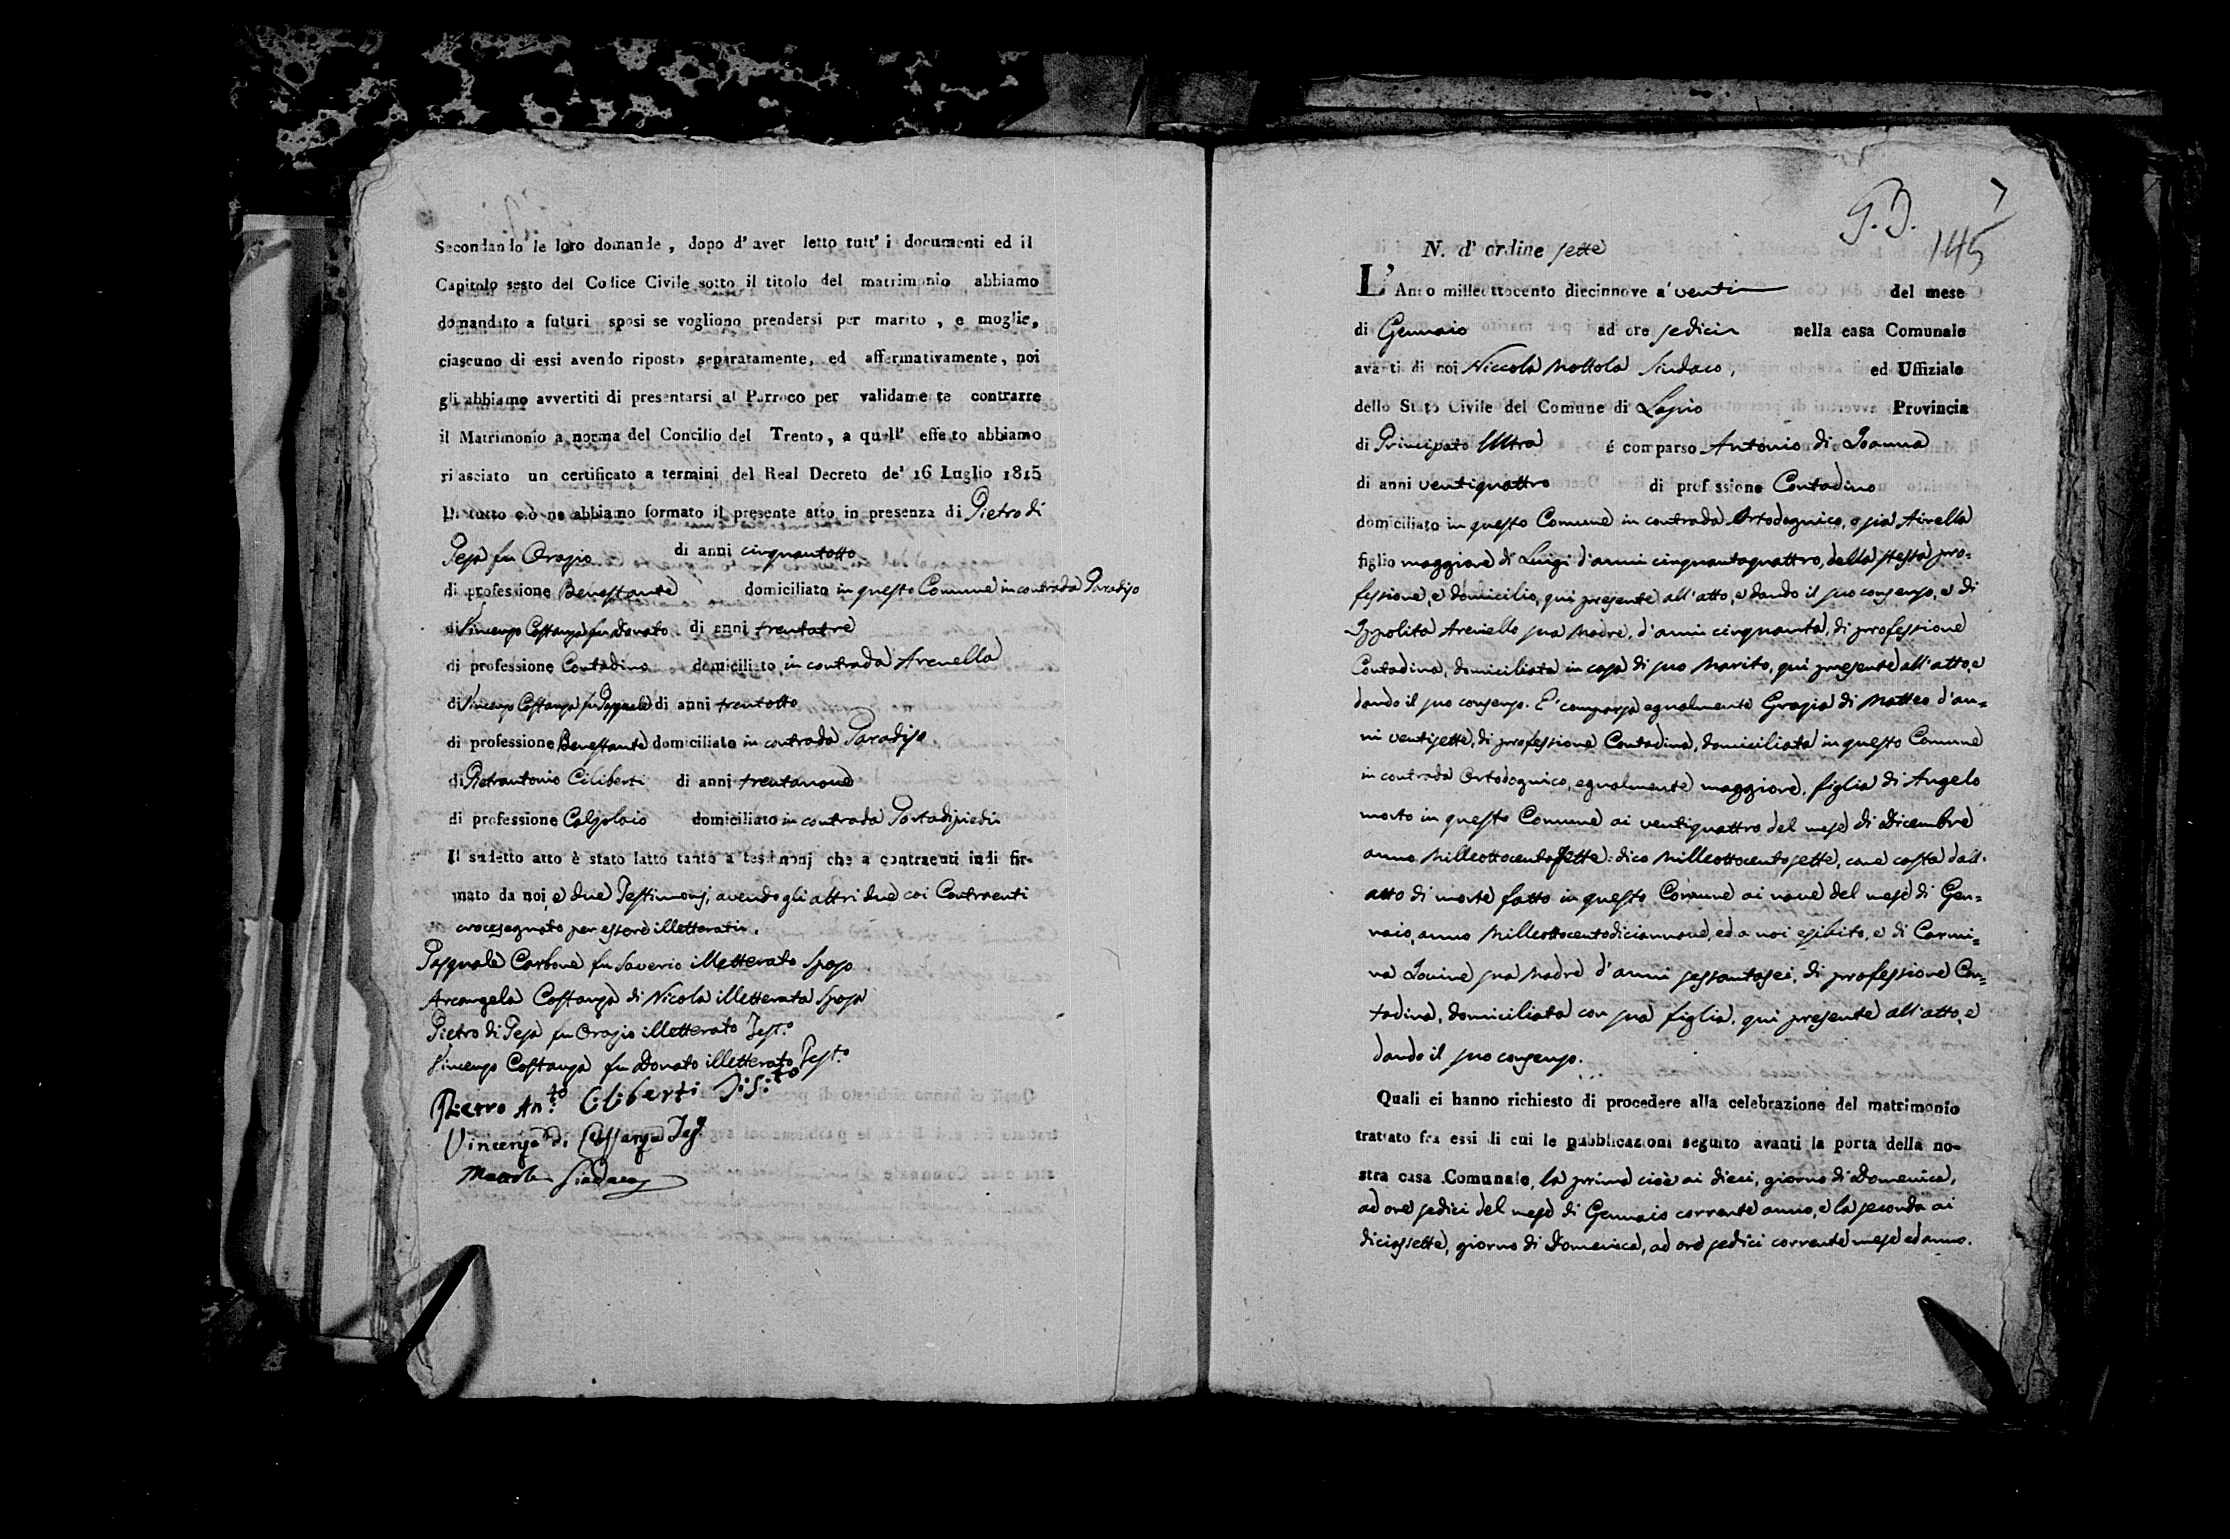 Secondando le loro domande, dopo d' aver letto tutt' i documenti ed il
Capitolo sesto del Codice Civile sotto il titolo del matrimonio abbiamo
domandato a futuri sposi se vogliono prendersi per marito, e moglie,
ciascuno di essi avendo riposto separatamente, ed affermativamente, noi
gli abbiamo avvertiti di presentarsi al Parroco per validamente contrarre
il Matrimonio a norma del Concilio del Trento, a quell' effetto abbiamo
rilasciato un certificato a termini del Real Decreto de' 16 Luglio 1815
Di tutto ciò ne abbiamo formato il presente atto in presenza di Pietro di
Pesa fu Orazio di anni cinquantotto
di professione Benestante domiciliato in questo Comune in contrada Paradiso
di Vincenzo Costanza fu Donato di anni trentatre
di professione Contadino domiciliato in contrada Arenella
di Vincenzo Costanza fu Pasquale di anni trentotto
di professione Benestante domiciliato in contrada Paradiso
di Pietrantonio Ciliberti di anni trentanove
di professione Calzolaio domiciliato in contrada Portadipiedi
Il sudetto atto è stato latto tanto a testimonj che a contraenti indi fir-
mato da noi, e due Testimonj, avendo gli altri due coi Contraenti
crocesegnato per essere illetterati.
Pasquale Carbone fu Saverio illetterato Sposo
Arcangela Costanza di Nicola illetterata Sposa
Pietro di Pesa fu Orazio illetterato Test.o
Vincenzo Costanza fu Donato illetterato Test.o
Pietro An.to Ciliberti
Vincenzo di Costanza Tes
Mottola Sindaco
G.D. 7
145
N. d' ordine sette
L' Anno milleottocento diecinnove a' venti del mese
di Gennaio ad ore sedici nella casa Comunale
avanti di noi Niccola Mottola Sindaco, ed Uffiziale
dello Stato Civile del Comune di Lapio Provincia
di Principato Ultra é comparso Antonio di Joanna
di anni ventiquattro di professione Contadino
domiciliato in questo Comune in contrada Ortodognico, o sia Airella
figlio maggiore di Luigi d'anni cinquantaquattro, della stessa pro=
fessione, e domicilio, qui presente all'atto, e dando il suo consenso, e di
Ippolita Areniello sua Madre, d'anni cinquanta, di professione
Contadina, domiciliata in casa di suo Marito, qui presente all'atto, e
dando il suo consenso. E' comparsa egualmente Grazia di Matteo d'an=
ni ventisette, di professione Contadina, domiciliata in questo Comune
in contrada Ortodognico, egualmente maggiore, figlia di Angelo
morto in questo Comune ai ventiquattro del mese di Dicembre
anno Milleottocentosette: dico Milleottocentosette, come costa dall'
atto di morte fatto in questo Comune ai nove del mese di Gen=
naio, anno Milleottocentodiciannove, ed a noi esibito, e di Carmi=
na Iovine sua Madre d'anni sessantasei, di professione Con=
tadina, domiciliata con sua figlia, qui presente all'atto, e
dando il suo consenso.
Quali ci hanno richiesto di procedere alla celebrazione del matrimonio
trattato fra essi di cui le pubblicazioni seguito avanti la porta della no-
stra casa Comunale, la prima cioè ai dieci, giorno di Domenica,
ad ore sedici del mese di Gennaio corrente anno, e la seconda ai
diciassette, giorno di Domenica, ad ore sedici corrente mese ed anno.